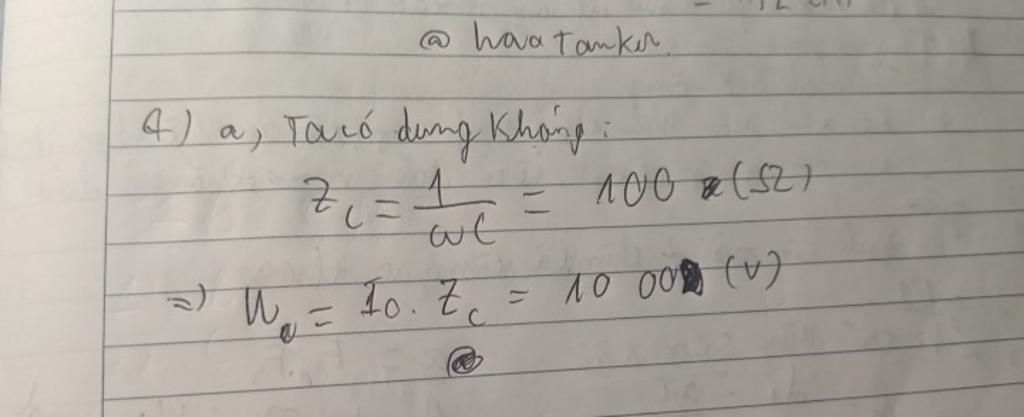 @ hoatanker
4) a, Ta có dung kháng:
Z_C = 1/ωC = 100 (Ω)
=> U_0 = I_0 . Z_C = 10 00 (V)